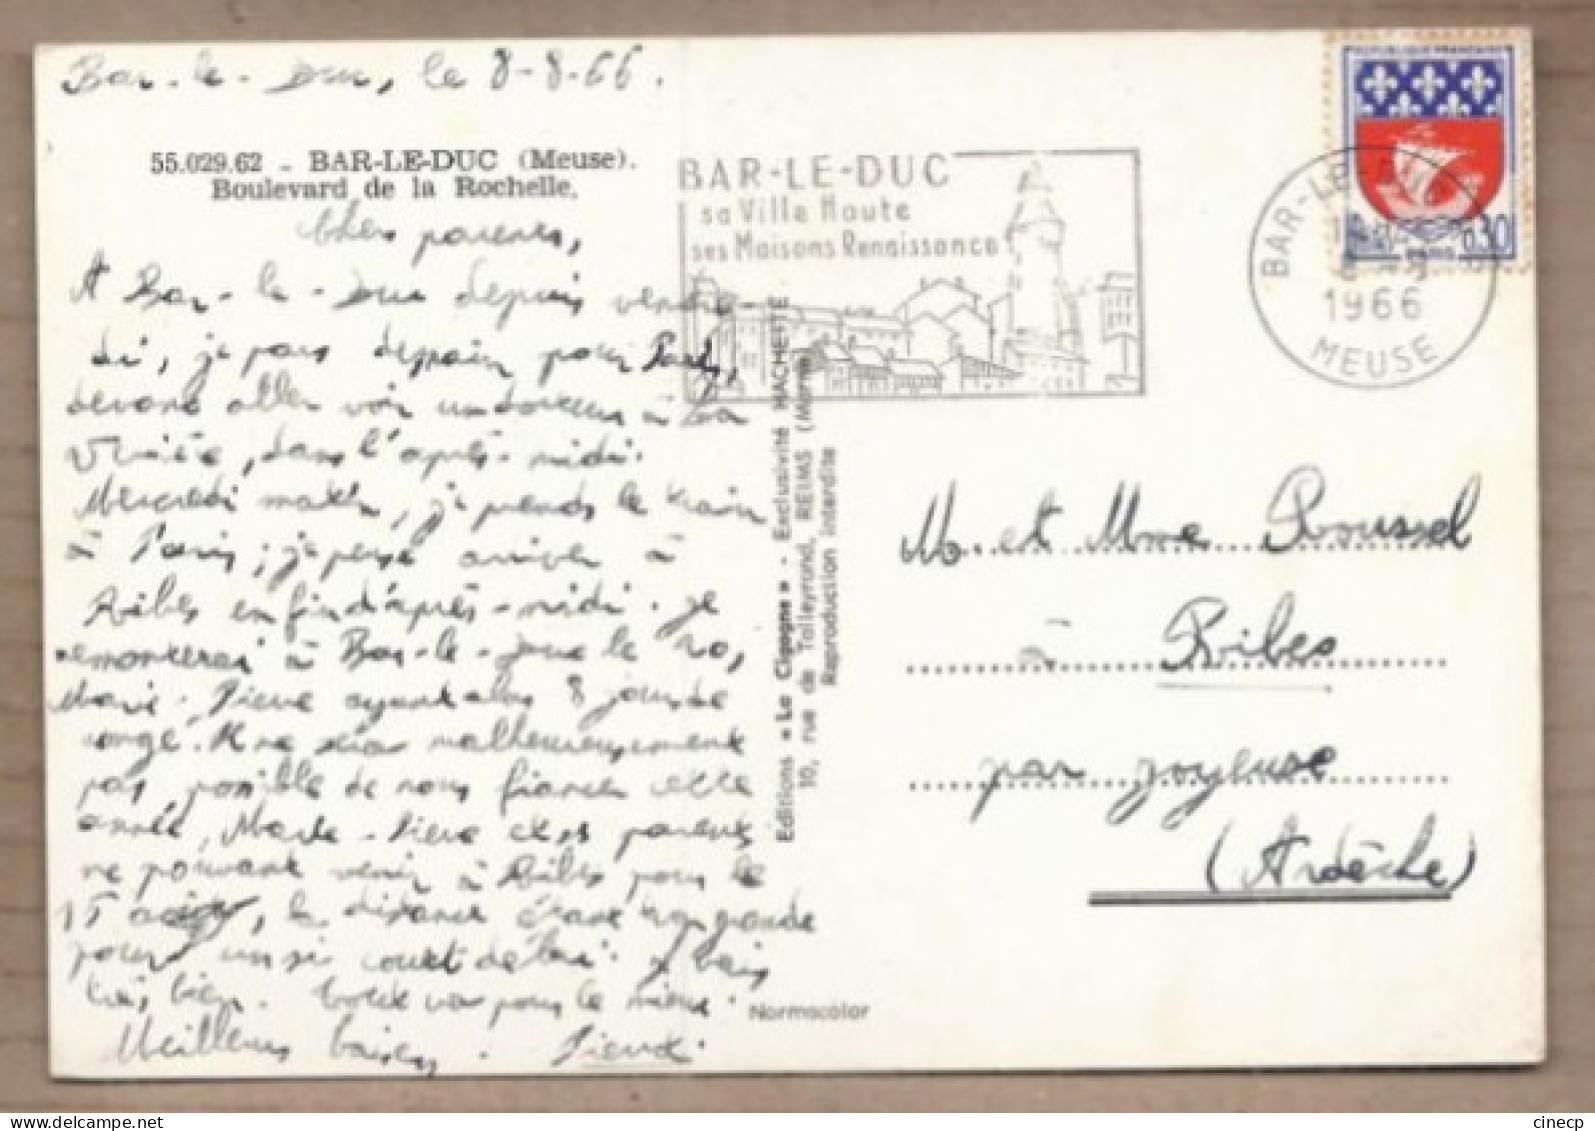 Bar-le-Duc, le 8-8-66.
55.029.62 - BAR-LE-DUC (Meuse).
Boulevard de la Rochelle.
Chers parents,
A Bar-le-Duc depuis vendre-
di, je pars demain pour Paris,
devant aller voir un docteur à La
dans l'après-midi.
Mercredi matin, je prends le train
à Paris ; je pense arriver à
Ribes en fin d'après-midi. Je
remonterai à Bar-le-Duc le 20,
Marie-Pierre ayant alors 8 jours de
congé. Il ne sera malheureusement
pas possible de nous fiancer cette
année, Marie-Pierre et ses parents
ne pouvant venir à Ribes pour le
15 août, la distance étant trop grande
pour un si court délai. Je vais
très bien. Tout va pour le mieux.
Meilleurs baisers. Pierre.
BAR-LE-DUC
sa Ville Haute
ses Maisons Renaissance
REPUBLIQUE FRANÇAISE
0,30
PARIS
BAR-LE-DUC
1966
MEUSE
Editions « La Cigogne » - Exclusivité HACHETTE
10, rue de Talleyrand, REIMS (Marne)
Reproduction interdite
M. et Mme Roussel
à Ribes
par Joyeuse
(Ardèche)
Normacolor
delcampe.net
cinecp